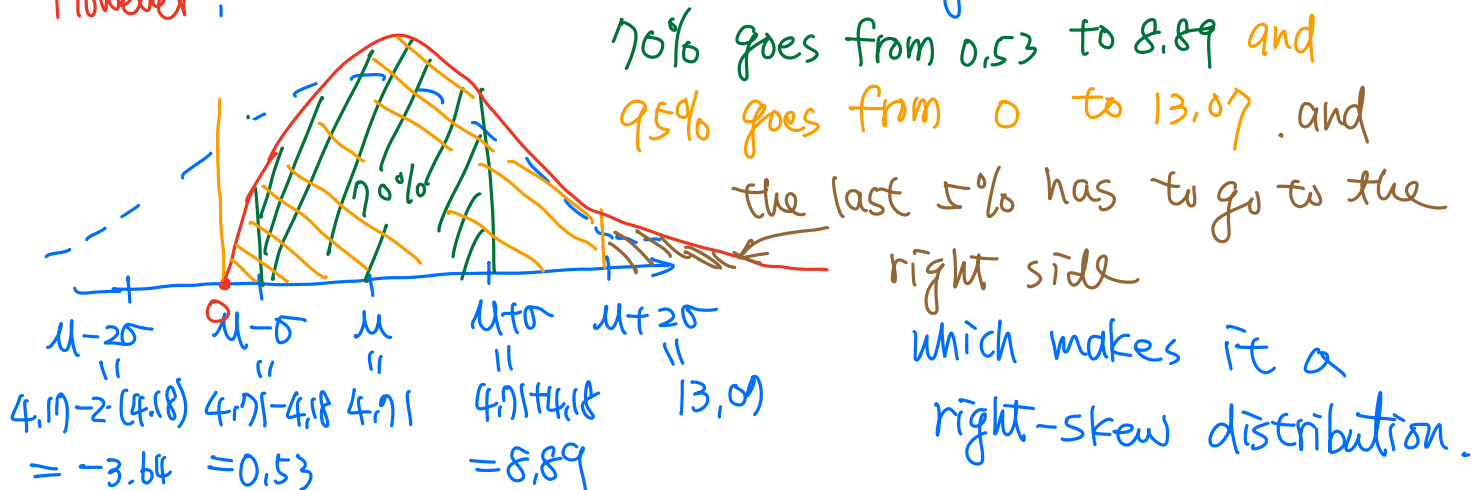 However :
70% goes from 0.53 to 8.89 and
95% goes from 0 to 13.07 . and
the last 5% has to go to the
right side
which makes it a
right-skew distribution.
70%
0
μ-2σ μ-σ μ μ+σ μ+2σ
= = = = =
4.17-2·(4.18) 4.71-4.18 4.71 4.71+4.18 13.07
= -3.64 =0.53 =8.89